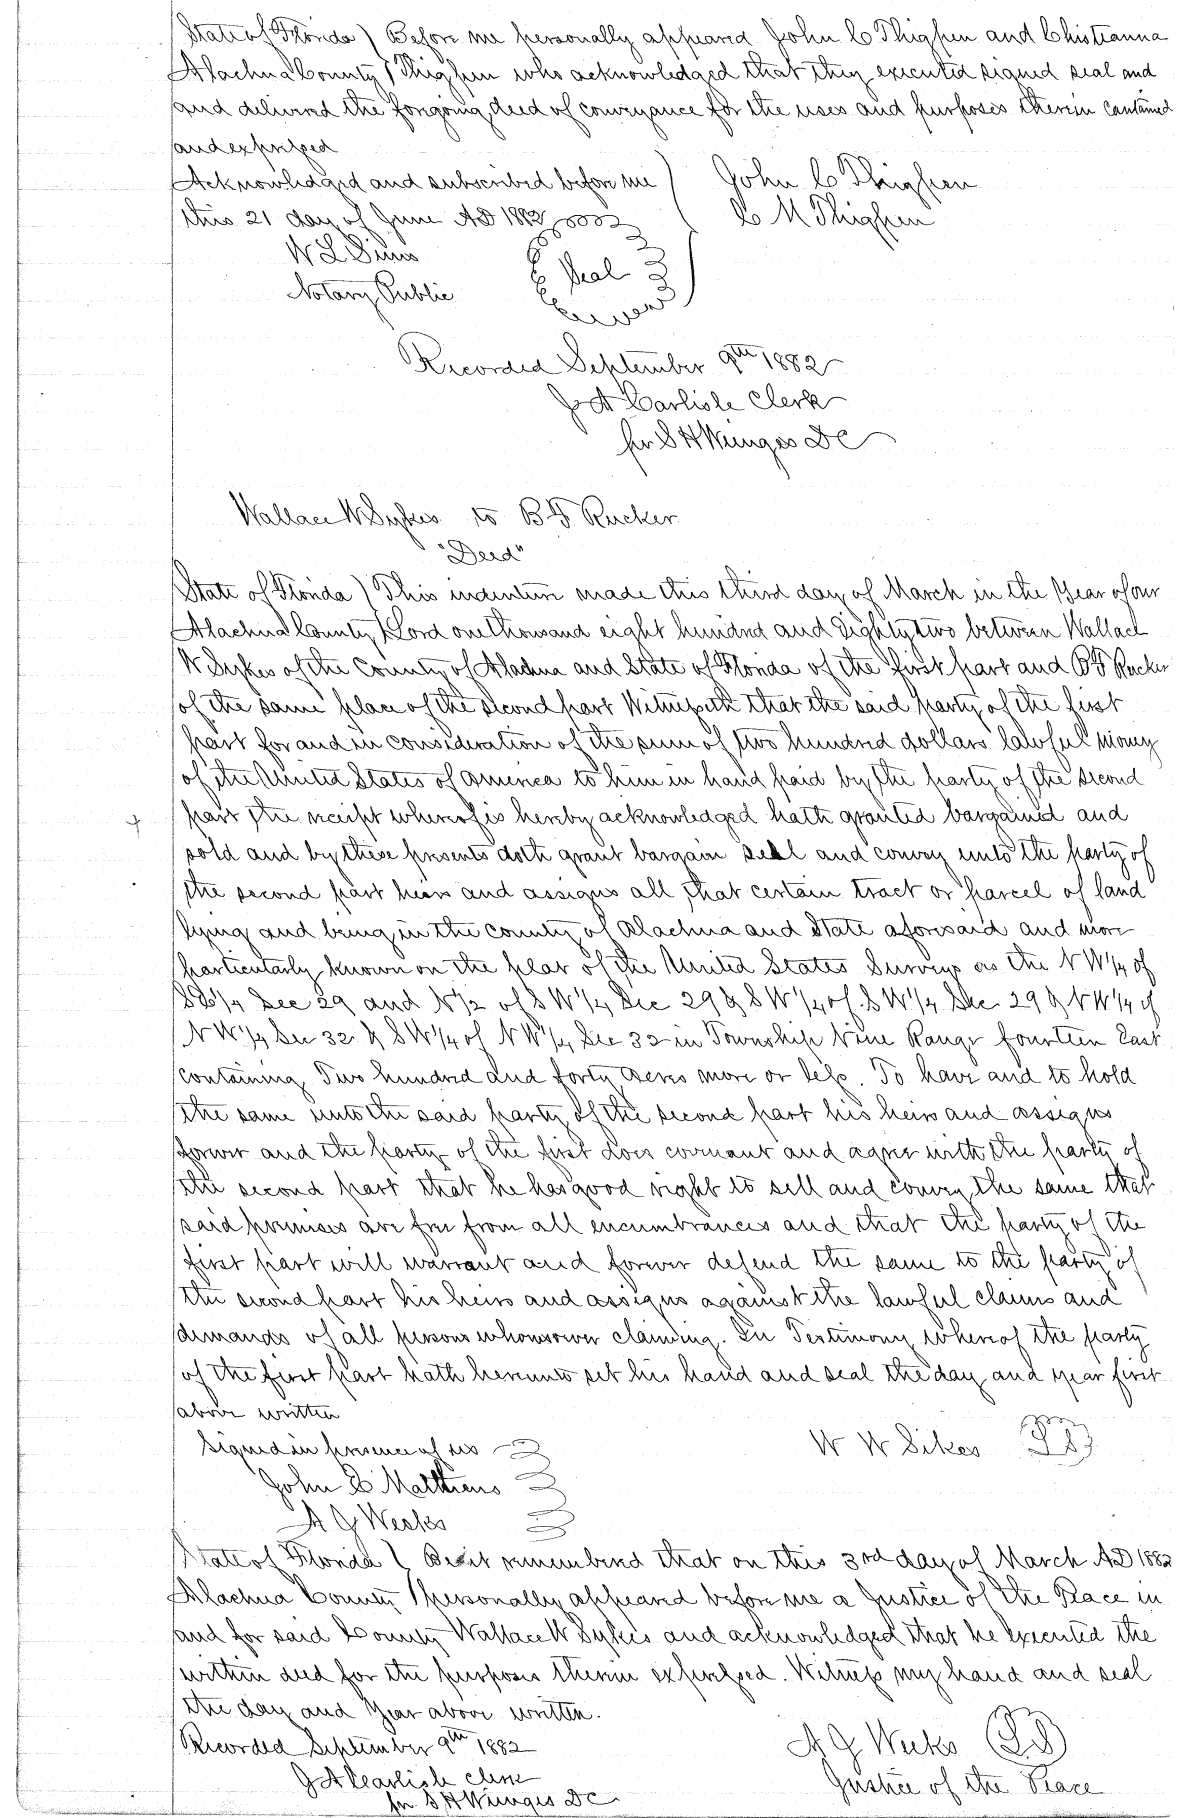 State of Florida ) Before me personally appeared John C Thigpen and Christianna
Alachua County ) Thigpen who acknowledged that they executed signed seal and
and delivered the forgoing deed of conveyance for the uses and purposes therein contained
and expressed
Acknowledged and subscribed before me ) John C Thigpen
this 21 day of June AD 1882 C M Thigpen
W L Sims
Seal
Notary Public
Recorded September 9th 1882
J A Carlisle Clerk
per S H Wienges DC
Wallace W Sykes to B F Rucker
"Deed"
State of Florida ) This indenture made this third day of March in the Year of our
Alachua County ) Lord one thousand eight hundred and Eighty two between Wallace
W Sykes of the County of Alachua and State of Florida of the first part and B F Rucker
of the same place of the second part Witnesseth that the said party of the first
part for and in consideration of the sum of two hundred dollars lawful money
of the United States of america to him in hand paid by the party of the second
part the receipt whereof is hereby acknowledged hath granted bargained and
sold and by these presents doth grant bargain sell and convey unto the party of
the second part heirs and assigns all that certain tract or parcel of land
lying and being in the county of Alachua and State aforesaid and more
particularly known on the plat of the United States Surveys as the N W 1/4 of
S E 1/4 Sec 29 and N 1/2 of S W 1/4 Sec 29 & S W 1/4 of S W 1/4 Sec 29 & N W 1/4 of
N W 1/4 Sec 32 & S W 1/4 of N W 1/4 Sec 32 in Township Nine Range fourteen East
containing Two hundred and forty Acres more or less. To have and to hold
the same unto the said party of the second part his heirs and assigns
forever and the party of the first does covenant and agree with the party of
the second part that he has good right to sell and convey the same that
said premises are free from all encumbrances and that the party of the
first part will warrant and forever defend the same to the party of
the second part his heirs and assigns against the lawful claims and
demands of all persons whomsoever claiming. In Testimony whereof the party
of the first part hath hereunto set his hand and seal the day and year first
above written
Signed in presence of us W W Sikes LS
John C Mathews
A G Weeks
State of Florida ) Be it remembered that on this 3rd day of March AD 1882
Alachua County ) personally appeared before me a Justice of the Peace in
and for said County Wallace W Sykes and acknowledged that he executed the
within deed for the purposes therein expressed. Witness my hand and seal
the day and Year above written.
Recorded September 9th 1882 A G Weeks LS
J A Carlisle Clerk Justice of the Peace
per S H Wienges DC